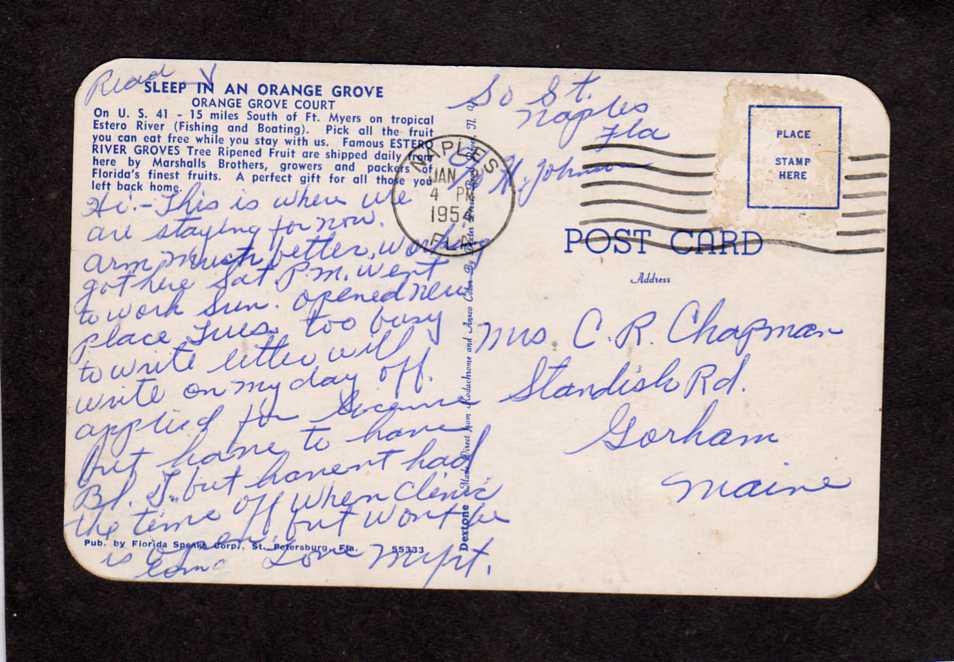 Read
SLEEP IN AN ORANGE GROVE
ORANGE GROVE COURT
On U. S. 41 - 15 miles South of Ft. Myers on tropical
Estero River (Fishing and Boating). Pick all the fruit
you can eat free while you stay with us. Famous ESTERO
RIVER GROVES Tree Ripened Fruit are shipped daily from
here by Marshalls Brothers, growers and packers of
Florida's finest fruits. A perfect gift for all those you
left back home.
Hi - This is where we
are staying for now.
arm much better, working
got here Sat P.M. went
to work Sun. opened new
place Tues. too busy
to write letter will
write on my day off.
applied for
but have to have
Bl. T. but havent had
the time off when Clinic
is open, but wont be
long Love Myrt.
Pub. by Florida Speaks Corp., St. Petersburg, Fla. 55333
Dextone Made Direct from Kodachrome and Ansco Color By Dexter Press, Pearl River, N. Y.
So St.
Naples
Fla
NAPLES
JAN
4 PM
1954
FLA.
PLACE
STAMP
HERE
POST CARD
Address
Mrs C. R. Chapman
Standish Rd.
Gorham
Maine